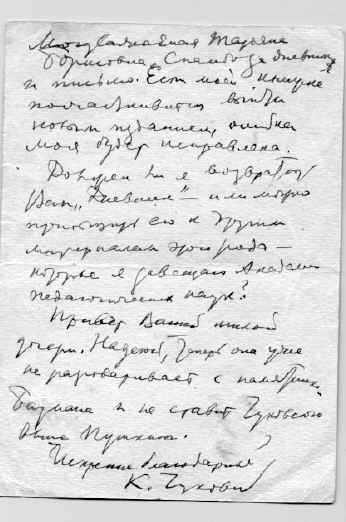 Многоуважаемая Татьяна
Борисовна. Спасибо за дневник
и письмо. Если моей книжке
посчастливится выйти
новым изданием, ошибка
моя будет исправлена.
Должен ли я возвратить
Вам „Дневник" — или можно
присоединить его к другим
материалам этого рода —
которые я завещаю Академии
педагогических наук?
Привет Вашей милой
дочери. Надеюсь, теперь она уже
не разговаривает с
и не ставит Чуковского
выше Пушкина.
Искренне благодарный
К. Чуковский